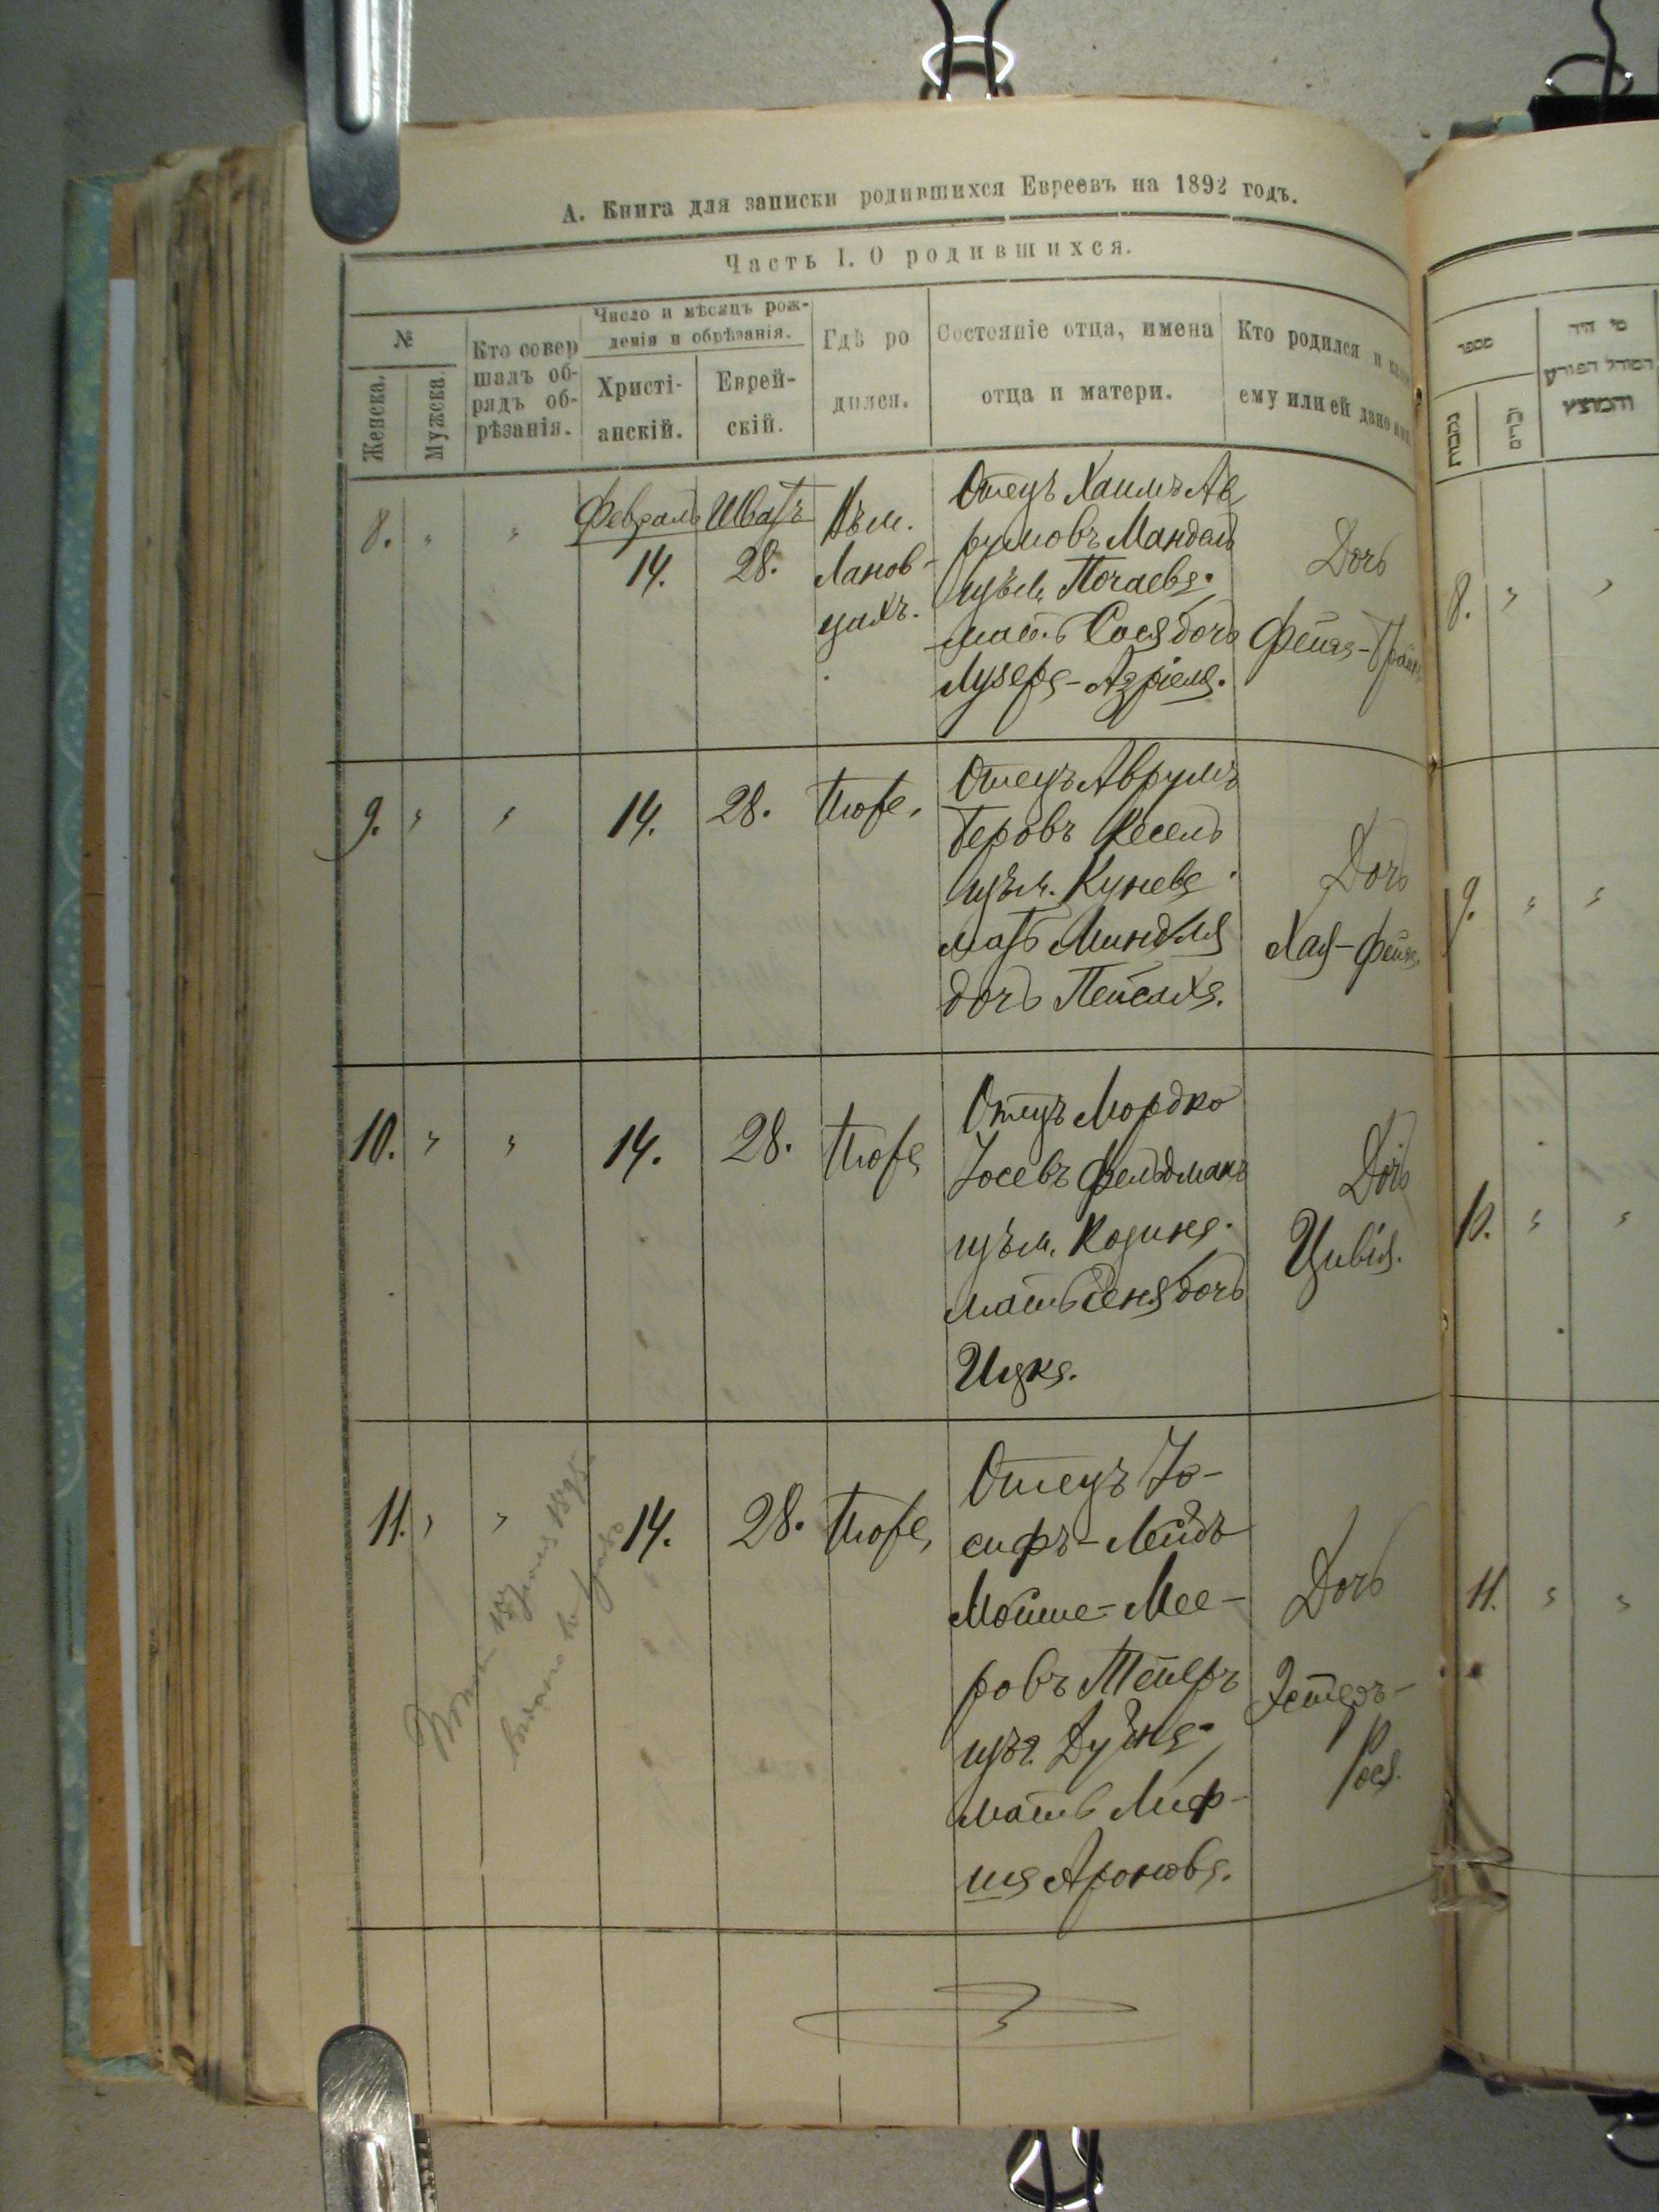 А. Книга для записки родившихся Евреевъ на 1892 годъ.
Часть I. О родившихся.
№
Женска.
Мужска.
Кто совер
шалъ об-
рядъ об-
рѣзанія.
Число и мѣсяцъ рож-
денія и обрѣзанія.
Христі-
анскій.
Еврей-
скій.
Гдѣ ро
дился.
Состояніе отца, имена
отца и матери.
Кто родился и
ему или ей дано
8. " "
Февраль
14.
Шватъ
28.
Въ м.
Ланов-
цахъ.
Отецъ Хаимъ Ав
румовъ Мандель
изъ м. Почаева.
мать Сося дочь
Лузера-Азріеля.
Дочь
Фейга-
9. " "
14.
28.
Тоже,
Отецъ Аврумъ
Беровъ Кесель
изъ м. Кунева
мать Миндля
дочь Пейсаха.
Дочь
Хая-Фейга.
10. " "
14.
28.
Тоже
Отецъ Мордко
Іосевъ Фельдманъ
изъ м. Козина.
мать Сеня дочь
Ицка.
Дочь
Цивія.
11. " "
14.
28.
Тоже,
Отецъ Іо-
сифъ-Лейбъ
Мойше-Мее-
ровъ Теперъ
изъ г. Дубна.
мать Лиф-
ша Аронова.
Дочь
Эстеръ-
Рося.
1895.
מספר
נקבות
זכרים
מי היה
המוהל הפורע
והמוצץ
8. " "
9. " "
10. " "
11. " "